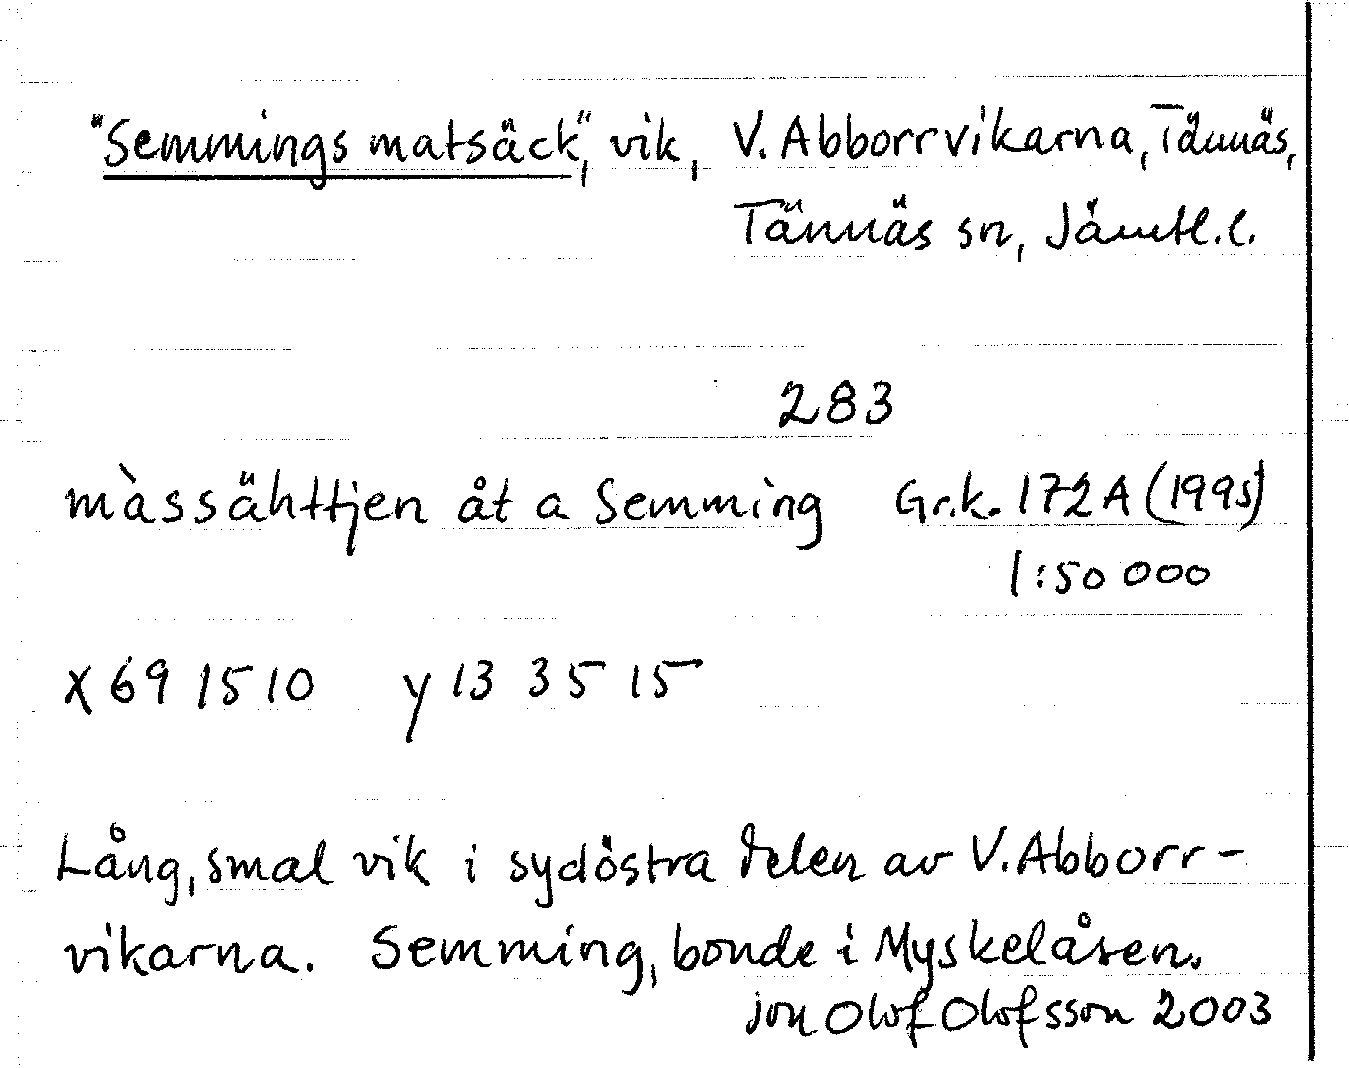 "Semmings matsäck", vik, V. Abborrvikarna, Tännäs,
Tännäs sn, Jämtl.l.
283
màssähttjen åt a Semming Gr.k. 172A (1995)
1:50 000
x 69 15 10 y 13 35 15
Lång, smal vik i sydöstra delen av V. Abborr-
vikarna. Semming, bonde i Myskelåsen.
Jon Olof Olofsson 2003